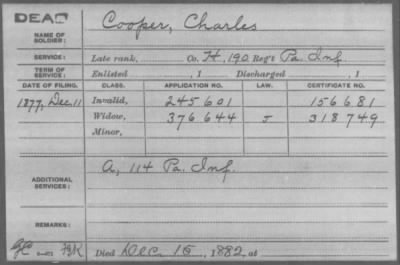 DEAD
NAME OF SOLDIER: Cooper, Charles
SERVICE: Late rank, Co. H, 190 Reg't Pa. Inf.
TERM OF SERVICE: Enlisted , 1 Discharged , 1
DATE OF FILING. CLASS. APPLICATION NO. LAW. CERTIFICATE NO.
1877, Dec. 11 Invalid, 245601 156681
Widow, 376644 J 318749
Minor,
ADDITIONAL SERVICES: A, 114 Pa. Inf.
REMARKS:
Died Dec. 15, 1882, at